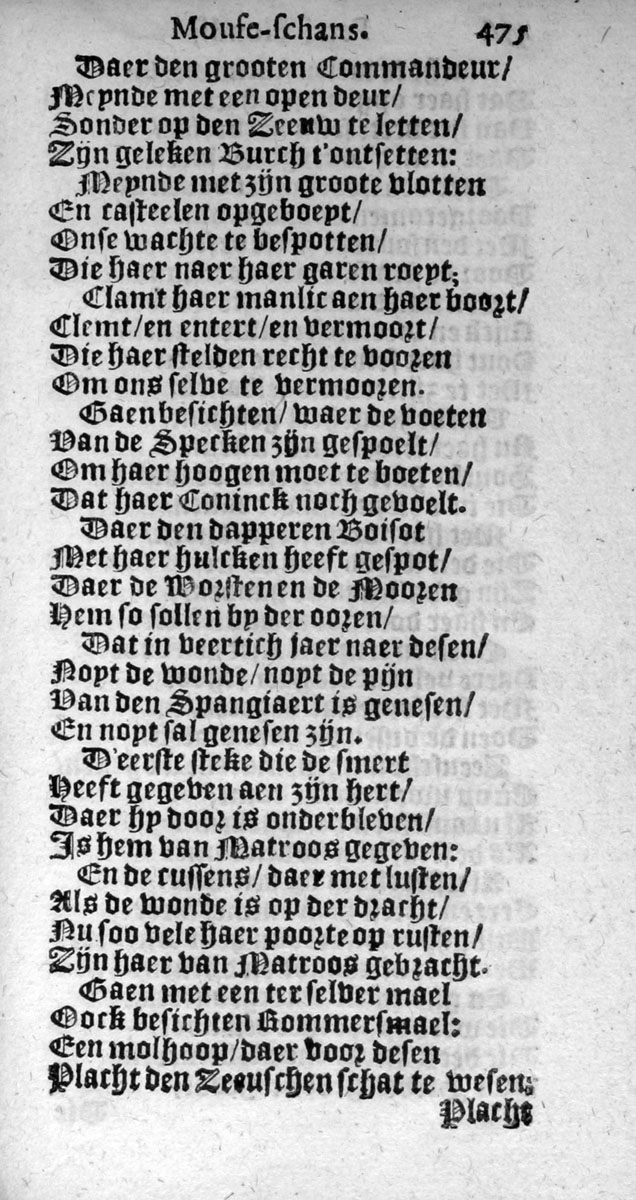 Mouſe-ſchans. 475
Daer den grooten Commandeur/
Meynde met een open deur/
Sonder op den Zeeuw te letten/
Zijn geleken Burch t'ontſetten:
Meynde met zijn groote vlotten
En caſteelen opgeboeyt/
Onſe wachte te beſpotten/
Die haer naer haer garen roeyt;
Clamt haer manlic aen haer boort/
Clemt/en entert/en vermoort/
Die haer ſtelden recht te vooren
Om ons ſelve te vermooren.
Gaen beſichten/ waer de voeten
Van de Specken zijn geſpoelt/
Om haer hoogen moet te boeten/
Dat haer Coninck noch gevoelt.
Daer den dapperen Boiſot
Met haer hulcken heeft geſpot/
Daer de Worſten en de Mooren
Hem ſo ſollen by der ooren/
Dat in veertich jaer naer deſen/
Noyt de wonde/noyt de pijn
Van den Spangiaert is geneſen/
En noyt ſal geneſen zijn.
D'eerſte ſteke die de ſmert
Heeft gegeven aen zijn hert/
Daer hy door is onderbleven/
Is hem van Matroos gegeven:
En de cuſſens/ daer met luſten/
Als de wonde is op der dracht/
Nu ſoo vele haer poorte op ruſten/
Zijn haer van Matroos gebracht.
Gaen met een ter ſelver mael
Oock beſichten Rommerſmael:
Een molhoop/daer voor deſen
Placht den Zeeuſchen ſchat te weſen;
Placht